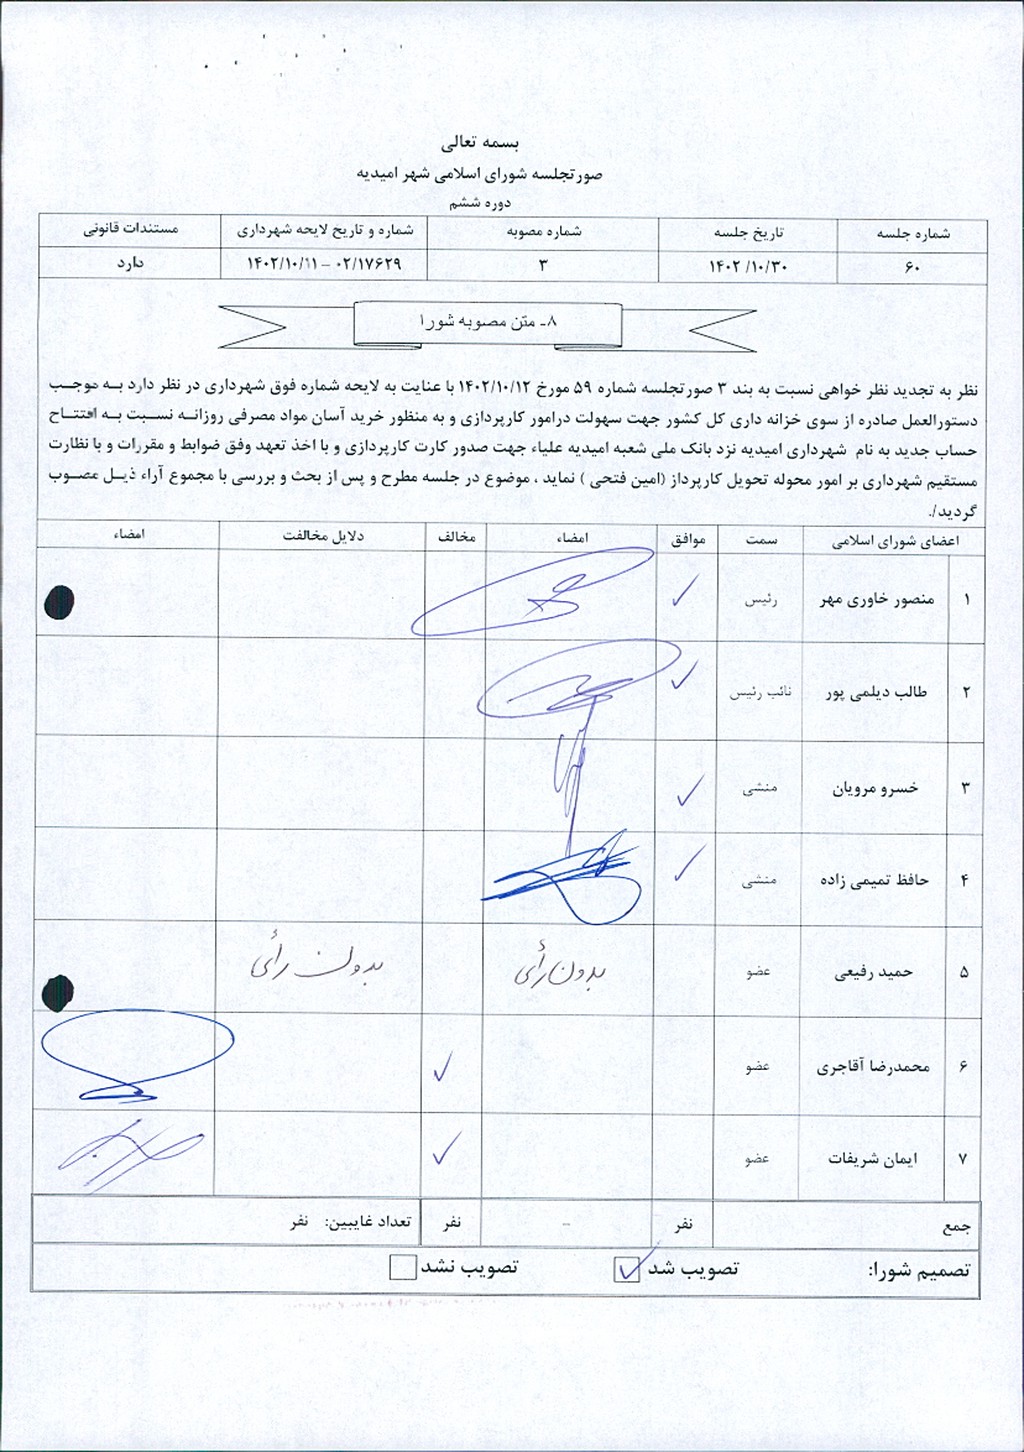 بسمه تعالی
صورتجلسه شورای اسلامی شهر امیدیه
دوره ششم
شماره جلسه تاریخ جلسه شماره مصوبه شماره و تاریخ لایحه شهرداری مستندات قانونی
۶۰ ۱۴۰۲/۱۰/۳۰ ۳ ۰۲/۱۷۶۲۹ – ۱۴۰۲/۱۰/۱۱ دارد
۸- متن مصوبه شورا
نظر به تجدید نظر خواهی نسبت به بند ۳ صورتجلسه شماره ۵۹ مورخ ۱۴۰۲/۱۰/۱۲ با عنایت به لایحه شماره فوق شهرداری در نظر دارد به موجب
دستورالعمل صادره از سوی خزانه داری کل کشور جهت سهولت درامور کارپردازی و به منظور خرید آسان مواد مصرفی روزانه نسبت به افتتاح
حساب جدید به نام شهرداری امیدیه نزد بانک ملی شعبه امیدیه علیاء جهت صدور کارت کارپردازی و با اخذ تعهد وفق ضوابط و مقررات و با نظارت
مستقیم شهرداری بر امور محوله تحویل کارپرداز (امین فتحی ) نماید ، موضوع در جلسه مطرح و پس از بحث و بررسی با مجموع آراء ذیل مصوب
گردید/.
اعضای شورای اسلامی سمت موافق امضاء مخالف دلایل مخالفت امضاء
۱ منصور خاوری مهر رئیس ✓
۲ طالب دیلمی پور نائب رئیس ✓
۳ خسرو مرویان منشی ✓
۴ حافظ تمیمی زاده منشی ✓
۵ حمید رفیعی عضو بدون رأی بدون رأی
۶ محمدرضا آقاجری عضو ✓
۷ ایمان شریفات عضو ✓
جمع نفر - نفر تعداد غایبین: نفر
تصمیم شورا: تصویب شد ✓ تصویب نشد